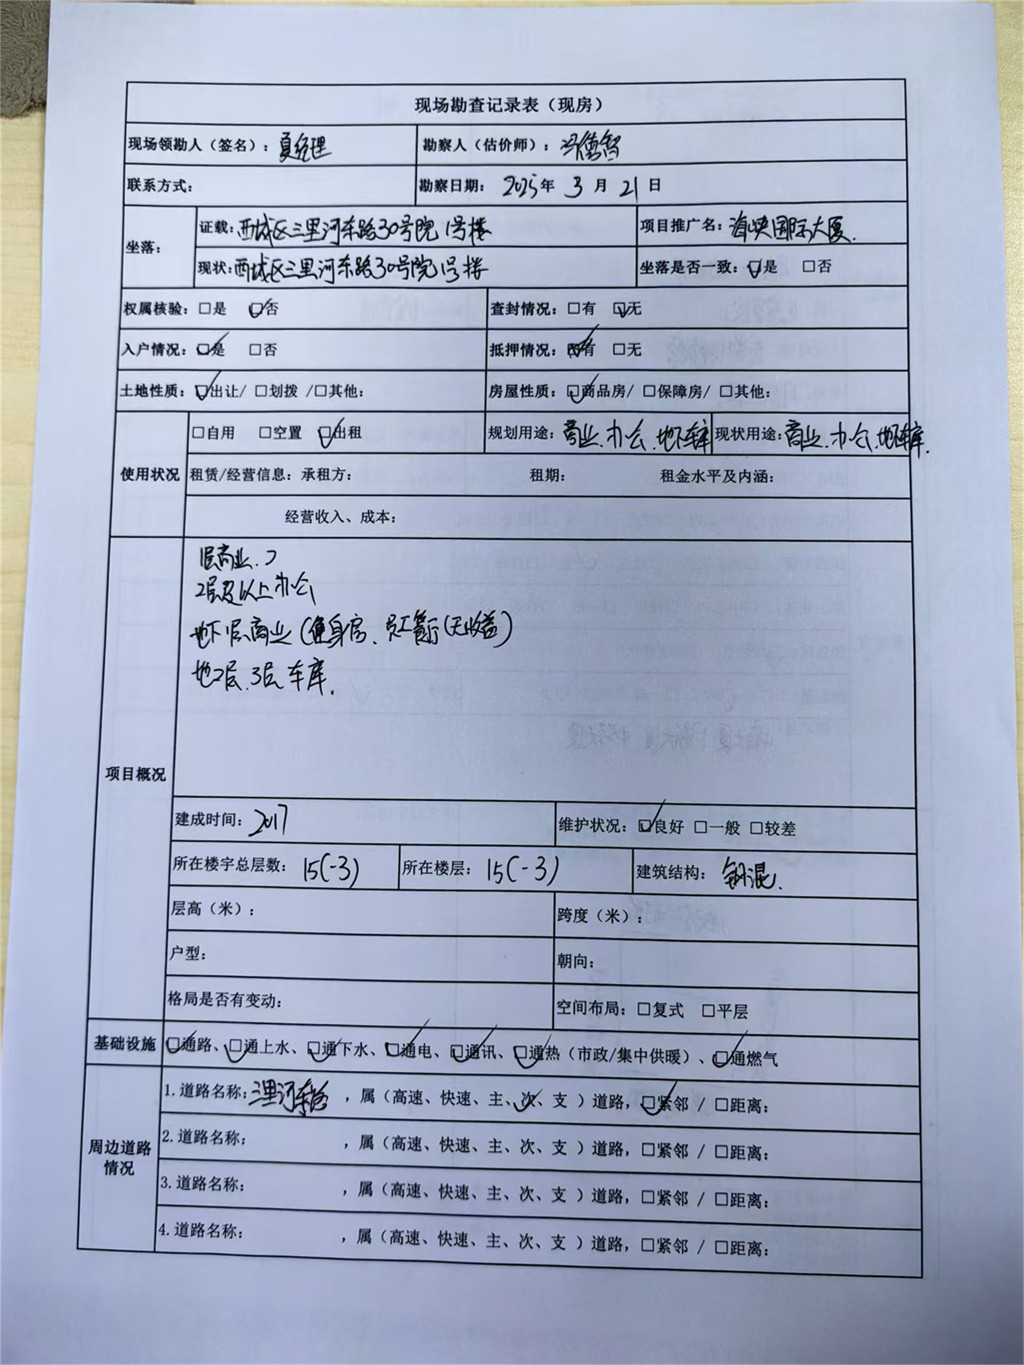 现场勘查记录表（现房）
现场领勘人（签名）：夏经理 勘察人（估价师）：冯德智
联系方式： 勘察日期：2025年 3 月 21 日
坐落： 证载：西城区三里河东路30号院1号楼 项目推广名：海峡国际大厦.
现状：西城区三里河东路30号院1号楼 坐落是否一致：☑是 □否
权属核验：□是 ☑否 查封情况：□有 ☑无
入户情况：☑是 □否 抵押情况：☑有 □无
土地性质：☑出让/ □划拨 /□其他： 房屋性质：☑商品房/ □保障房/ □其他：
使用状况 □自用 □空置 ☑出租 规划用途：商业.办公.地下车库 现状用途：商业.办公.地下车库.
租赁/经营信息：承租方： 租期： 租金水平及内涵：
经营收入、成本：
项目概况
1层商业.
2层及以上办公
地下1层商业（健身房、员工餐厅（无收益）
地2层.3层车库.
建成时间：2017 维护状况：☑良好 □一般 □较差
所在楼宇总层数：15(-3) 所在楼层：15(-3) 建筑结构：钢混.
层高（米）： 跨度（米）：
户型： 朝向：
格局是否有变动： 空间布局：□复式 □平层
基础设施 ☑通路、☑通上水、☑通下水、☑通电、☑通讯、☑通热（市政/集中供暖）、☑通燃气
周边道路情况 1.道路名称：三里河东路 ，属（高速、快速、主、次✓、支 ）道路，☑紧邻 / □距离：
2.道路名称： ，属（高速、快速、主、次、支 ）道路，□紧邻 / □距离：
3.道路名称： ，属（高速、快速、主、次、支 ）道路，□紧邻 / □距离：
4.道路名称： ，属（高速、快速、主、次、支 ）道路，□紧邻 / □距离：